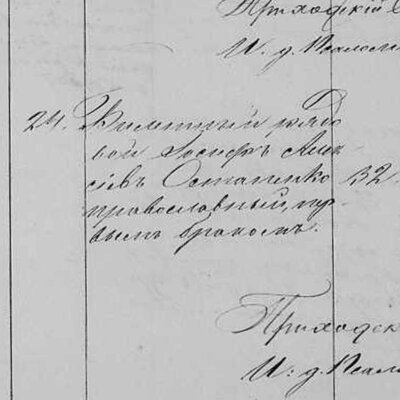 Приходскій
И. д. Псалом
24. Билетный рядо
вой Іосифъ Алек
сѣевъ Остапенко 32.
православный, пер
вымъ бракомъ.
Приходск
И: д. Псал